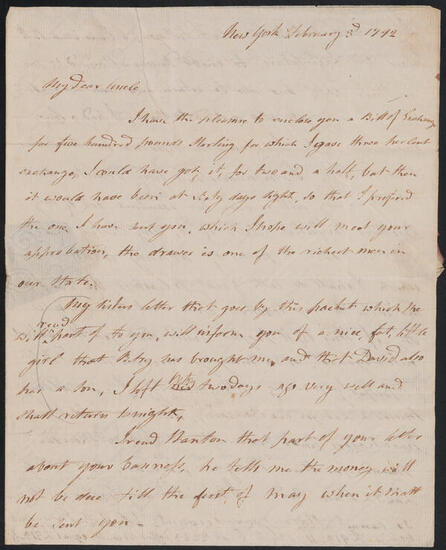 New York February 3d 1792
My dear Uncle
I have the pleasure to enclose you a Bill of Exchange
for five hundred pounds Sterling for which I gave three per Cent
exchange, I could have got it, for two and a half, but then
it would have been at Sixty days Sight, so that I prefered
the one I have sent you, which I hope will meet your
approbation, the drawer is one of the richest men in
our State.
My sisters letter that goes by this packet which he
read
will part of to you, will inform you of a nice, fat, little
girl that Betsy has brought me, and that David also
has a Son, I left two days ago very well and
shall return tonight,
I read Banton that part of your letter
about your business, he tells me the money will
not be due till the first of May when it shall
be sent you -